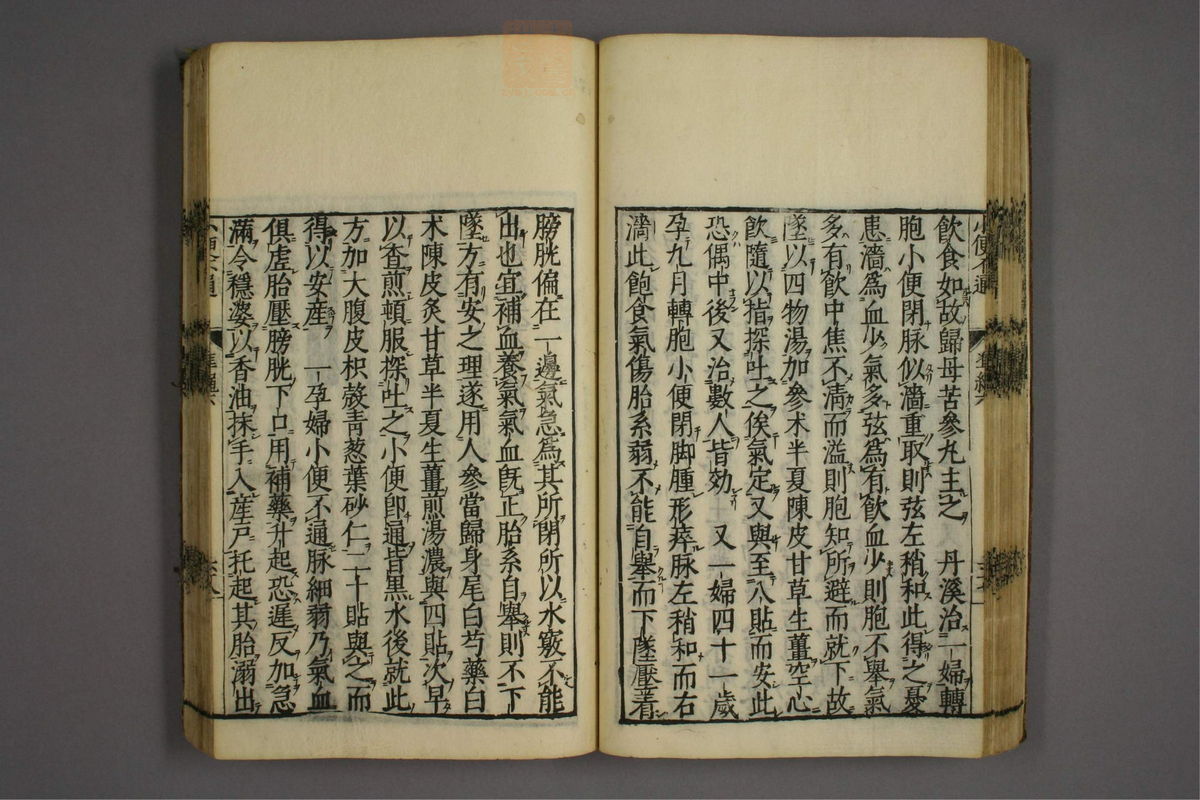 飲食如故歸母苦參丸主之　丹溪治一婦轉
胞小便閉脉似濇重取則弦左稍和此得之憂
患濇爲血少氣多弦爲有飲血少則胞不舉氣
多有飲中焦不淸而溢則胞知所避而就下故
墜以四物湯加參术半夏陳皮甘草生薑空心
飲隨以指探吐之俟氣定又與至八貼而安此
恐偶中後又治數人皆効　又一婦四十一歲
孕九月轉胞小便閉脚腫形瘁脉左稍和而右
濇此飽食氣傷胎系弱不能自舉而下墜壓着
膀胱偏在一邊氣急爲其所閉所以水竅不能
出也宜補血養氣氣血旣正胎系自舉則不下
墜方有安之理遂用人參當歸身尾白芍藥白
术陳皮炙甘草半夏生薑煎湯濃與四貼次早
以査煎頓服探吐之小便卽通皆黑水後就此
方加大腹皮枳殼靑葱葉砂仁二十貼與之而
得以安産　一孕婦小便不通脉細弱乃氣血
俱虛胎壓膀胱下口用補藥升起恐遲反加急
滿令穩婆以香油抹手入産戸托起其胎溺出
小便不通